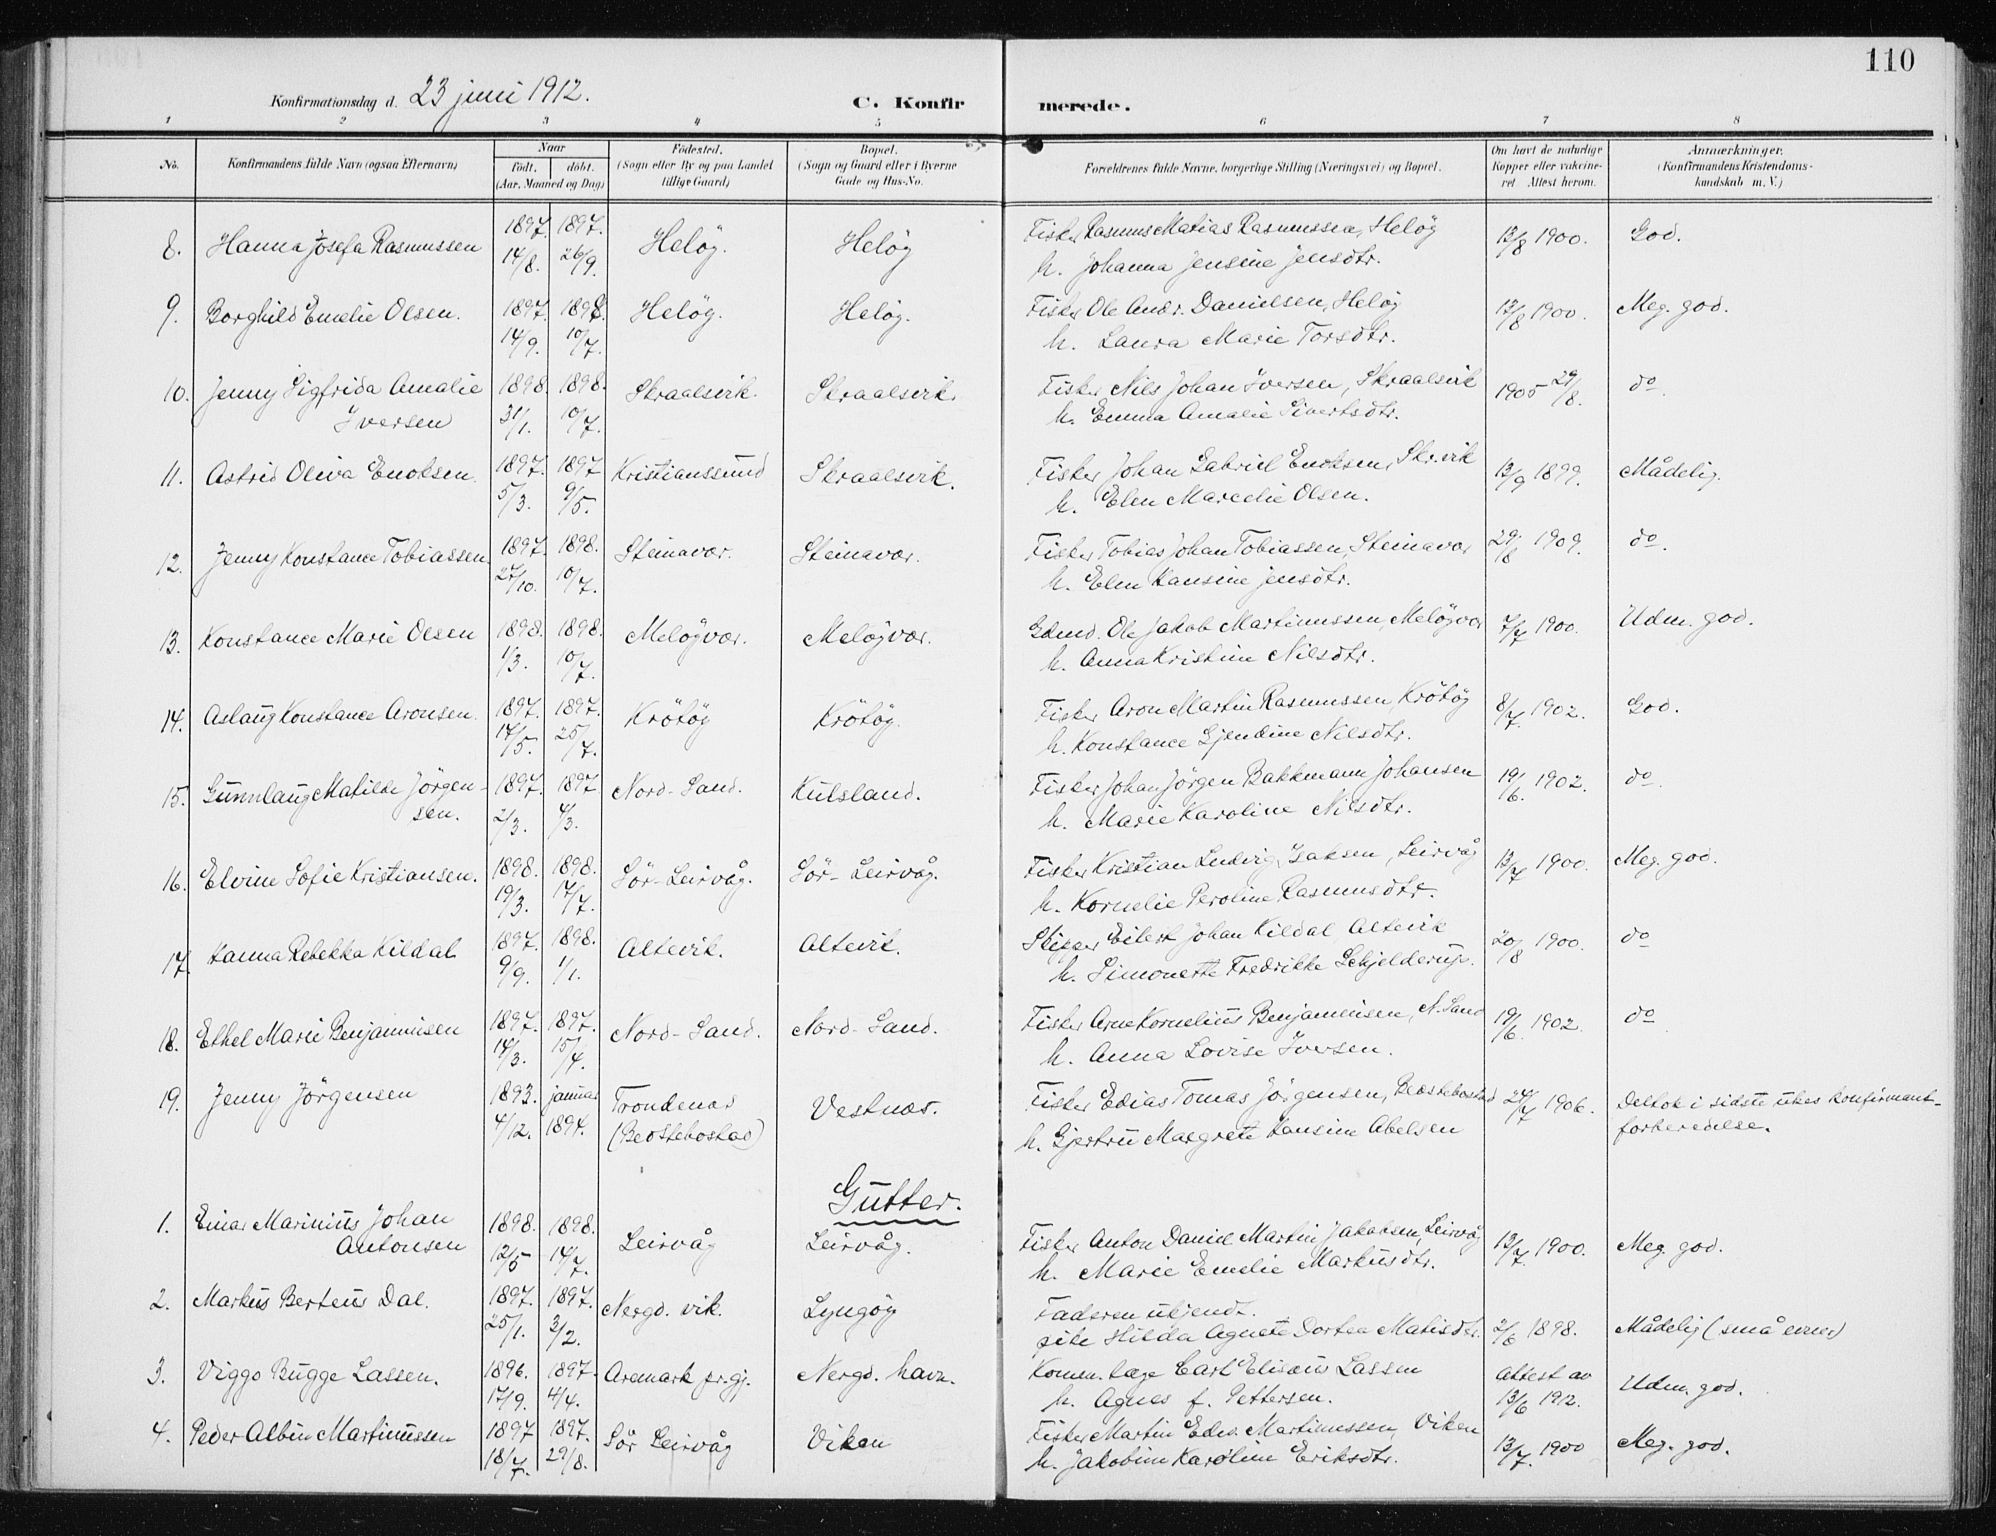 110
Konfirmationsdag d. 23 juni 1912. C. Konfir merede.
1 2 3 4 5 6 7 8
No. Konfirmandens fulde Navn (ogsaa Efternavn) Naar født. døbt. (Aar, Maaned og Dag) Fødested. (Sogn eller By og paa Landet tillige Gaard) Bopæl. (Sogn og Gaard eller i Byerne Gade og Hus-No. Forældrenes fulde Navne, borgerlige Stilling (Næringsvei) og Bopæl. Om havt de naturlige Kopper eller vakcineret Attest herom. Anmærkninger. (Konfirmandens Kristendomskundskab m. V.)
8. Hanna Josefa Rasmussen 1897. 1897. Heløy. Heløy Fisker Rasmus Matias Rasmussen, Heløy 13/8 1900. God.
14/8. 26/9. h. Johanna Jensine Jensdtr.
9. Borghild Emelie Olsen. 1897. 1898. Heløy. Heløy. Fisker Ole Andr. Danielsen, Heløy 13/8 1900. Meg. god.
14/9. 10/7. h. Laura Marie Torsdtr.
10. Jenny Sigfrida Amalie 1898. 1898. Skraalsvik. Skraalsvik. Fisker Nils Johan Iversen, Skraalsvik 1905 29/8. do.
Iversen 31/1. 10/7. h. Emma Amalie Sivertsdtr.
11. Astrid Oliva Enoksen. 1897. 1897 Kristianssund Skraalsvik. Fisker Johan Gabriel Enoksen, Skr.vik 13/9 1899. Mådelig.
5/3. 9/5. h. Elen Marcelie Olsen.
12. Jenny Konstance Tobiassen 1897. 1898. Steinavær. Steinavær. Fisker Tobias Johan Tobiassen, Steinavær 29/8 1909. do.
27/10. 10/7. h. Elen Hansine Jensdtr.
13. Konstance Marie Olsen 1898. 1898. Meløyvær. Meløyvær. Gdmd. Ole Jakob Martinussen, Meløyvær 7/7 1900. Udm. god.
1/3. 10/7. h. Anna Kristine Nilsdtr.
14. Aslaug Konstance Aronsen. 1897. 1897. Krøtøy Krøtøy. Fisker Aron Martin Rasmussen, Krøtøy 8/7. 1902. God.
14/5. 25/7. h. Konstance Gjendine Nilsdtr.
15. Gunnlaug Matilde Jørgen- 1897. 1897 Nord-Sand. Kulsland. Fisker Johan Jørgen Bakkmann Johansen 19/6. 1902. do.
sen. 2/3. 4/3. h. Marie Karoline Nilsdtr.
16. Elvine Sofie Kristiansen. 1898. 1898. Sør-Leirvåg. Sør-Leirvåg. Fisker Kristian Ludvig Isaksen, Leirvåg 13/7 1900. Meg. god.
19/3. 17/7. h. Kornelie Peroline Rasmusdtr.
17. Hanna Rebekka Kildal 1897. 1898. Altevik. Altevik. Skipper Eilert Johan Kildal Altevik 20/8 1900. do
9/9. 1/1. h. Simonette Fredrikke Schjelderup.
18. Ethel Marie Benjaminsen 1897. 1897. Nord-Sand. Nord-Sand. Fisker Arne Kornelius Benjaminsen, N. Sand 19/6. 1902. do
14/3. 15/4. h. Anna Lovise Iversen.
19. Jenny Jørgensen 1893. januar Trondenæs Vestnæs. Fisker Edias Tomas Jørgensen, 24/7 1906. Deltok i sidste ukes konfirmant-
4/12. 1894. h. Gjertru Margrete Hansine Abelsen forberedelse.
Gutter.
1. Einar Marinius Johan 1898. 1898. Leirvåg Leirvåg. Fisker Anton Daniel Martin Jakobsen, Leirvåg 13/7. 1900. Meg. god.
Antonsen 12/5 14/7. h. Marie Emelie Markusdtr.
2. Markus Berteus Dal. 1897. 1897. Nergd. vik. Lyngøy Faderen ukjendt.
25/1. 3/2. pike Hilda Agnete Dortea Matisdtr. 2/6 1898. Mådelig (små evner)
3. Viggo Bugge Lassen. 1896. 1897. Aremark pr.gj. Nergd. havn. Komm. læge Carl Elisæus Lassen attest av Udm. god.
17/9. 4/4. h. Agnes f. Pettersen. 13/6 1912.
4. Peder Albin Martinussen 1897 1897. Sør Leirvåg Viken Fisker Martin Edv. Martinussen, Viken 13/7. 1900 Meg. god.
18/7. 29/8. h. Jakobine Karoline Eriksdtr.